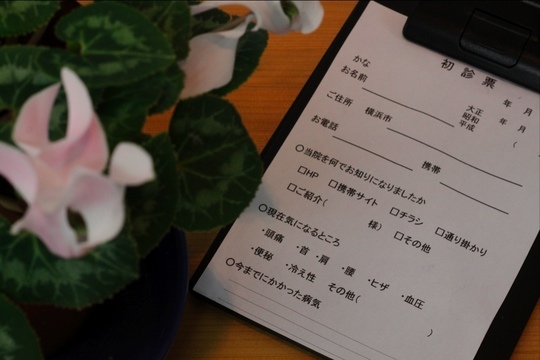 初診票
年 月
かな
お名前
大正
昭和
平成
年 月
(
ご住所 横浜市
お電話 携帯
○当院を何でお知りになりましたか
□HP □携帯サイト □チラシ □通り掛かり
□ご紹介( 様) □その他
○現在気になるところ
・頭痛 ・首 ・肩 ・腰 ・ヒザ ・血圧
・便秘 ・冷え性 その他( )
○今までにかかった病気